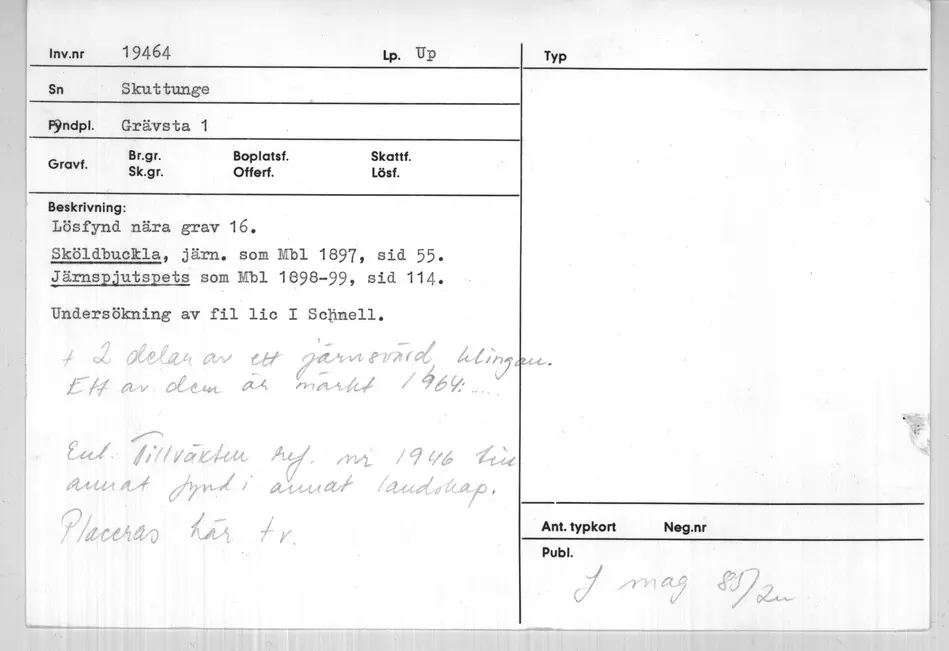 Inv.nr 19464 Lp. Up
Sn Skuttunge
Fyndpl. Grävsta 1
Gravf. Br.gr. Sk.gr. Boplatsf. Offerf. Skattf. Lösf.
Beskrivning:
Lösfynd nära grav 16.
Sköldbuckla, järn. som Mbl 1897, sid 55.
Järnspjutspets som Mbl 1898-99, sid 114.
Undersökning av fil lic I Schnell.
+ 2 delar av ett järnsvärd, klingan.
Ett av dem är märkt 1964: ....
Enl. Tillväxten ref. nr 1946 till
annat fynd i annat landskap.
Placeras här t v.
Typ
Ant. typkort Neg.nr
Publ.
J mag 85/